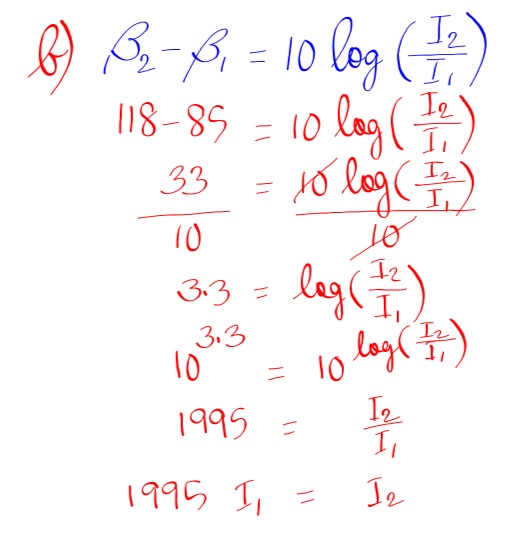 b) β₂ − β₁ = 10 log(I₂/I₁)
118 − 85 = 10 log(I₂/I₁)
33/10 = 10 log(I₂/I₁)/10
3.3 = log(I₂/I₁)
10^3.3 = 10^log(I₂/I₁)
1995 = I₂/I₁
1995 I₁ = I₂